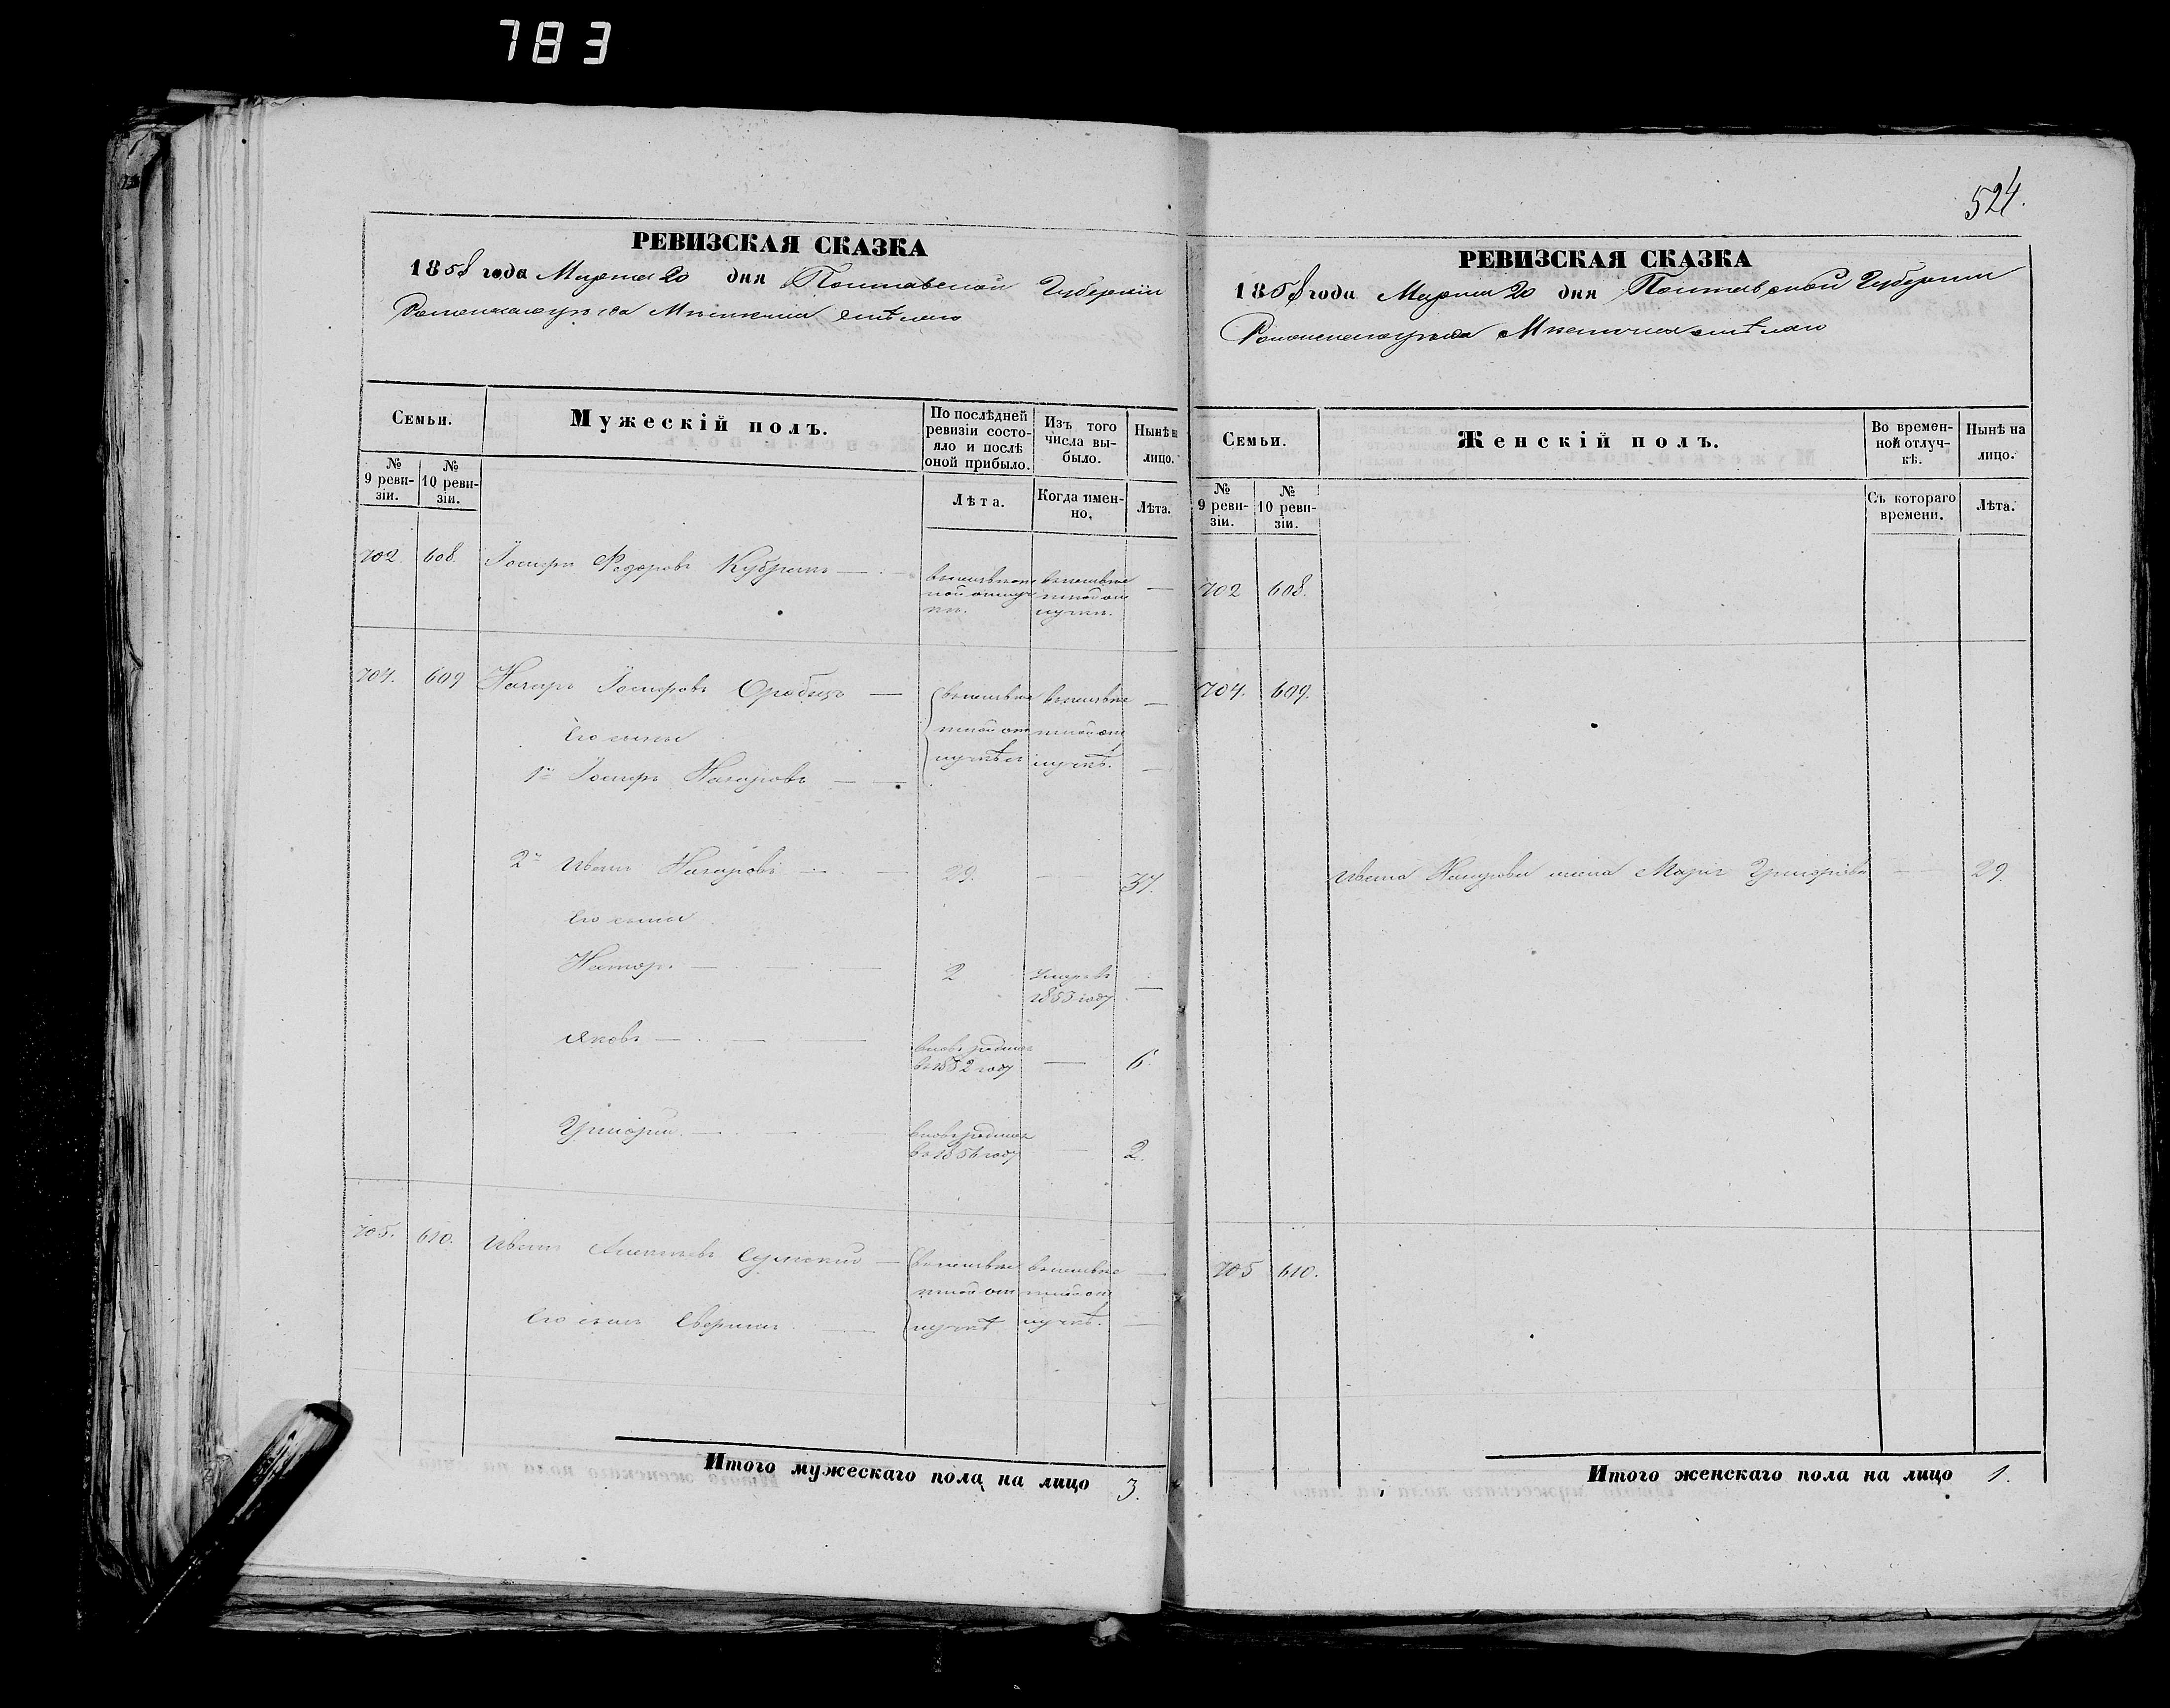 783
524.
РЕВИЗСКАЯ СКАЗКА
1858 года Марта 20 дня Полтавской Губернии
Роменскаго уезда Мѣстечка Смѣлаго
Семьи.
Мужескій полъ.
По послѣдней ревизіи состояло и послѣ оной прибыло.
Изъ того числа выбыло.
Нынѣ на лицо.
№ 9 ревизіи.
№ 10 ревизіи.
Лѣта.
Когда именно.
Лѣта.
702 608. Іосифъ Федоровъ — въ неизвѣстной отлучкѣ. въ неизвѣстной отлучкѣ. —
704. 609 Назаръ Іосифовъ — въ неизвѣстной отлучкѣ въ неизвѣстной отлучкѣ. —
Его сыны
1й Іосифъ Назаровъ — —
2й Иванъ Назаровъ — — 29. — 37.
Его сыны
Несторъ — — — 2 умеръ въ 1853 году —
Яковъ — — — вновь родился въ 1852 году — 6.
Григорій — — — вновь родился въ 1856 году — 2.
705. 610. Иванъ Алексѣевъ Сумскій — въ неизвѣстной отлучкѣ въ неизвѣстной отлучкѣ. —
Его сынъ — —
Итого мужескаго пола на лицо 3.
РЕВИЗСКАЯ СКАЗКА
1858 года Марта 20 дня Полтавской Губернии
Роменскаго уезда Мѣстечка Смѣлаго
Семьи.
Женскій полъ.
Во временной отлучкѣ.
Нынѣ на лицо.
№ 9 ревизіи.
№ 10 ревизіи.
Съ котораго времени.
Лѣта.
702 608.
704. 609.
Ивана Назарова жена Марія Григорьева — 29.
705 610.
Итого женскаго пола на лицо 1.